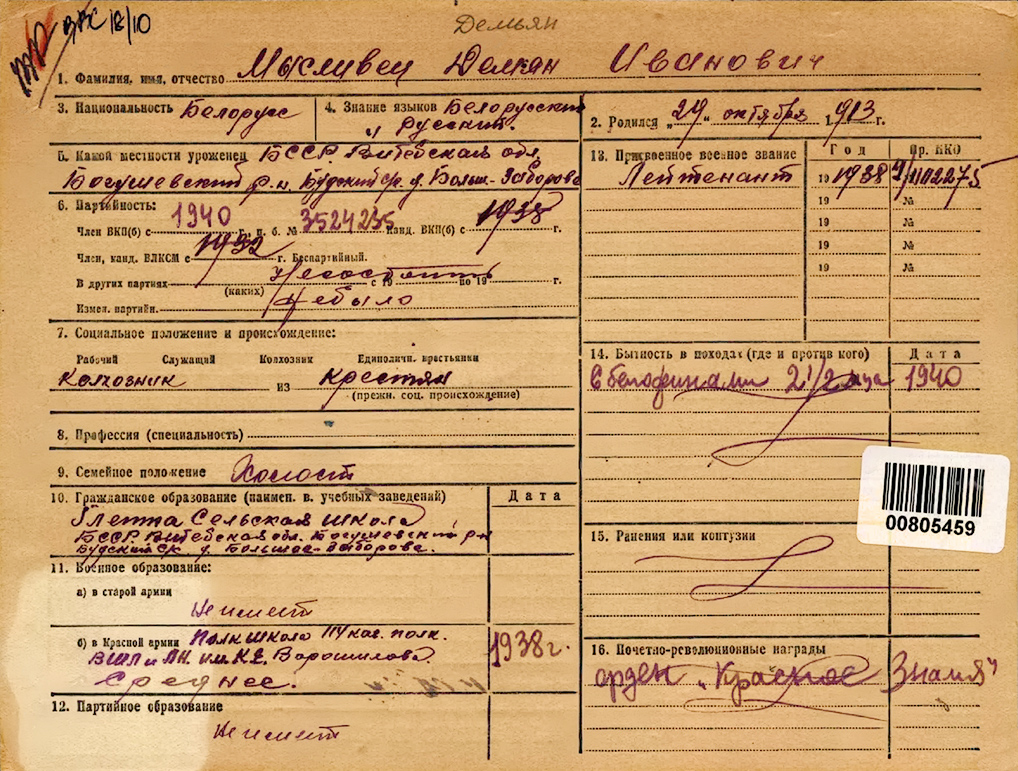 ВВС 18/10
Демьян
1. Фамилия, имя, отчество Мысливец Демян Иванович
3. Национальность Белорус
4. Знание языков Белорусский
и русский.
2. Родился „29“ октября 1913 г.
5. Какой местности уроженец БССР. Витебская обл.
Богушевский р-н. Будский ср. д. Больш. Заборова
6. Партийность:
Член ВКП(б) с 1940 г. п. б. № 3524235 канд. ВКП(б) с 1938 г.
Член, канд. ВЛКСМ с 1932 г. Беспартийный.
В других партиях Несостоять с 19 по 19 г.
(каких)
Измен. партийн. Небыло
7. Социальное положение и происхождение:
Рабочий Служащий Колхозник Единоличн. крестьянки
Колхозник из Крестян
(прежн. соц. происхождение)
8. Профессия (специальность)
9. Семейное положение Холост
10. Гражданское образование (наимен. в. учебных заведений) Дата
7 летна Сельская школа
БССР. Витебская обл. Богушевский р-н
Будский ср. д. Большое-Заборова.
11. Военное образование:
а) в старой армии
Не имеет
б) в Красной армии Полк школа кав. полк.
им. К.Е. Ворошилова. 1938 г.
Среднее.
12. Партийное образование
Не имеет
13. Присвоенное военное звание Год Пр. НКО
Лейтенант 19 1938 № 02275
19 №
19 №
19 №
19 №
14. Бытность в походах (где и против кого) Дата
С белофинами 2 1/2 м-ца 1940
15. Ранения или контузии
00805459
16. Почетно-революционные награды
орден „Красное Знамя“